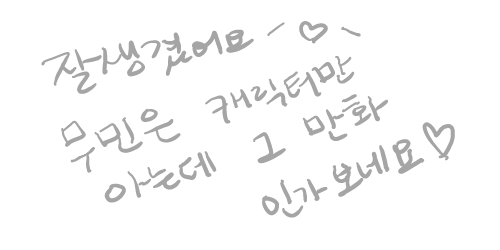 잘생겼어요 ♡
무민은 캐릭터만
아는데 그 만화
인가보네요♡